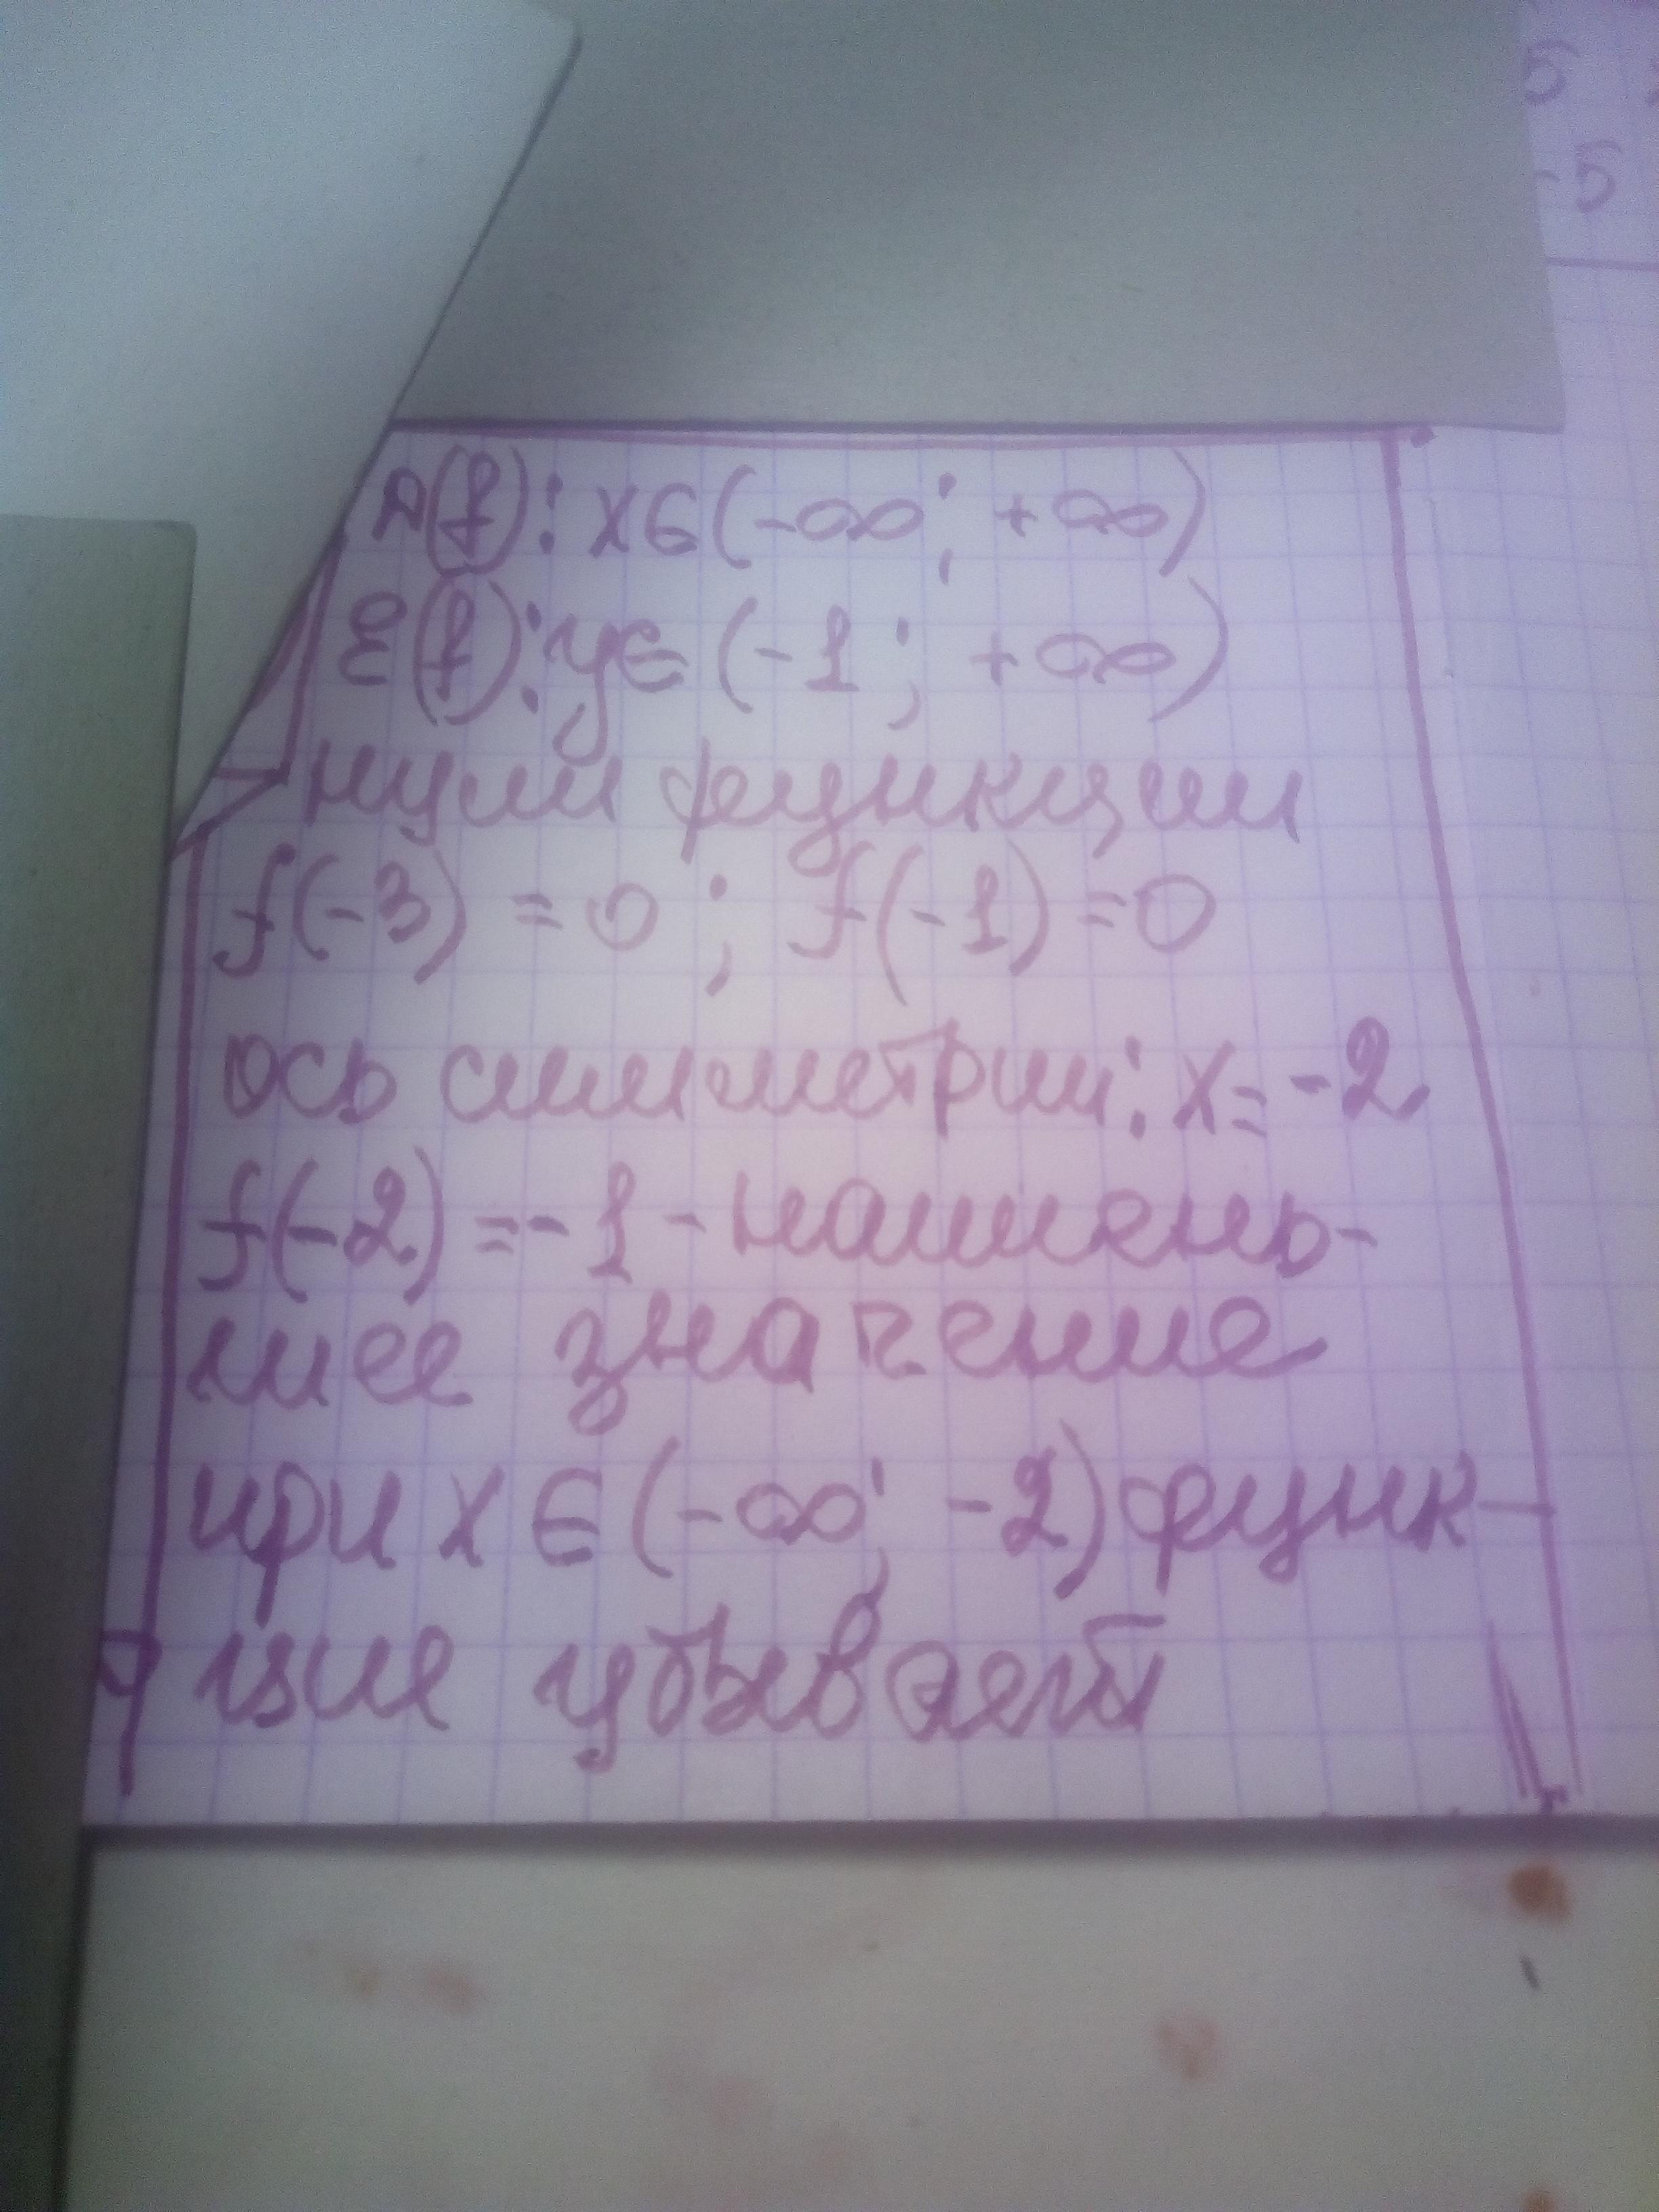 5
-5
Д(f): x∈(-∞; +∞)
E(f): y∈(-1; +∞)
нули функции
f(-3) = 0; f(-1) = 0
ось симметрии: x = -2
f(-2) = -1 - наимень-
шее значение
при x ∈ (-∞; -2) функ-
ция убывает